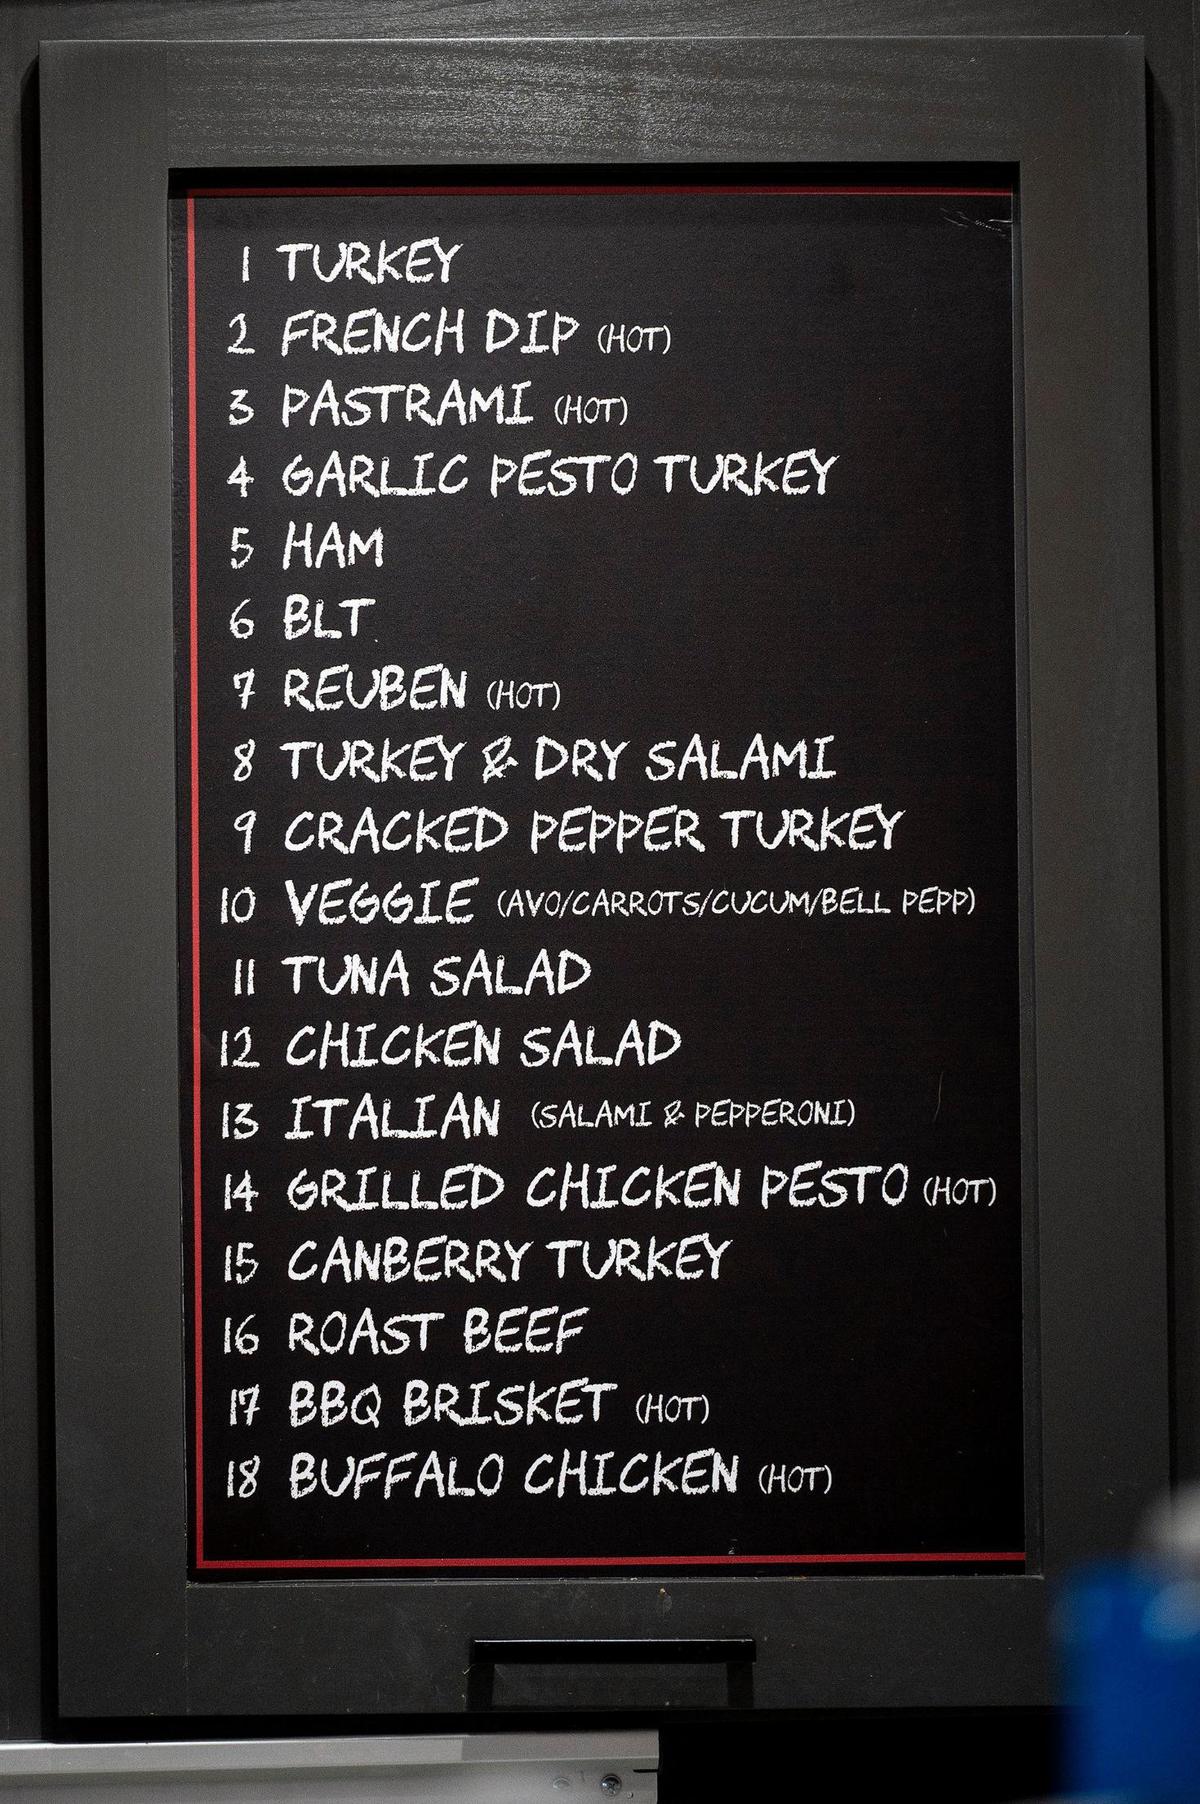 1 TURKEY
2 FRENCH DIP (HOT)
3 PASTRAMI (HOT)
4 GARLIC PESTO TURKEY
5 HAM
6 BLT
7 REUBEN (HOT)
8 TURKEY & DRY SALAMI
9 CRACKED PEPPER TURKEY
10 VEGGIE (AVO/CARROTS/CUCUM/BELL PEPP)
11 TUNA SALAD
12 CHICKEN SALAD
13 ITALIAN (SALAMI & PEPPERONI)
14 GRILLED CHICKEN PESTO (HOT)
15 CANBERRY TURKEY
16 ROAST BEEF
17 BBQ BRISKET (HOT)
18 BUFFALO CHICKEN (HOT)